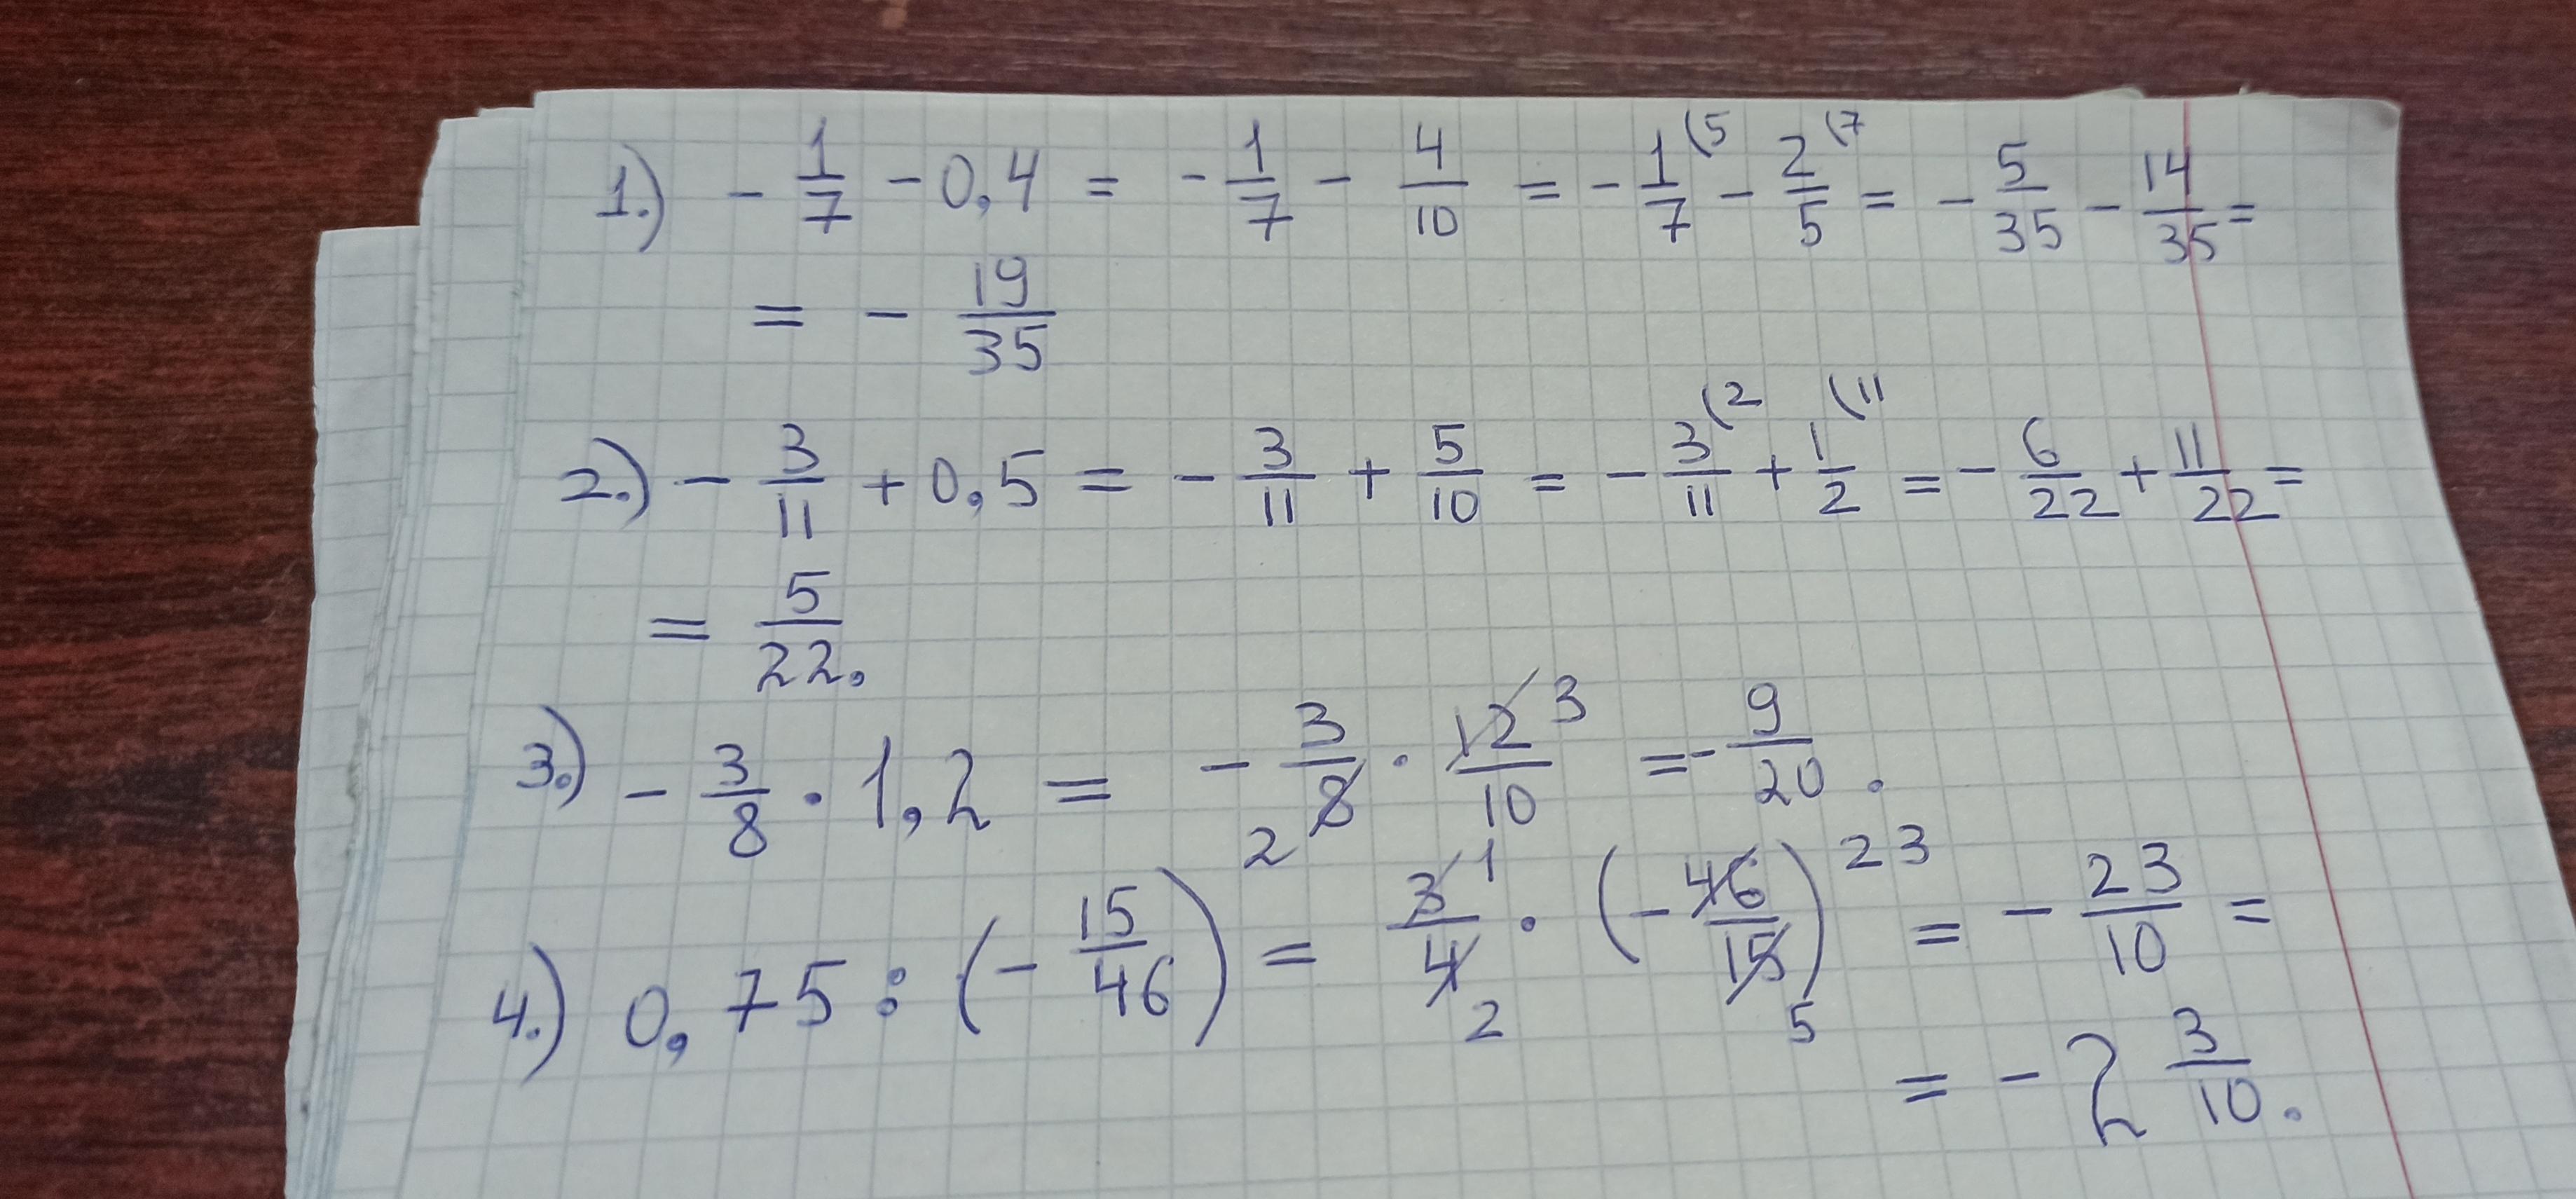 1.) - 1/7 - 0,4 = - 1/7 - 4/10 = - 1/7 (5 - 2/5 (7 = - 5/35 - 14/35 =
= - 19/35
2.) - 3/11 + 0,5 = - 3/11 + 5/10 = - 3/11 (2 + 1/2 (11 = - 6/22 + 11/22 =
= 5/22.
3.) - 3/8 · 1,2 = - 3/8 2 · 12/10 3 = - 9/20.
4.) 0,75 : (- 15/46) = 3/4 1 2 · (- 46/15) 23 5 = - 23/10 =
= - 2 3/10.